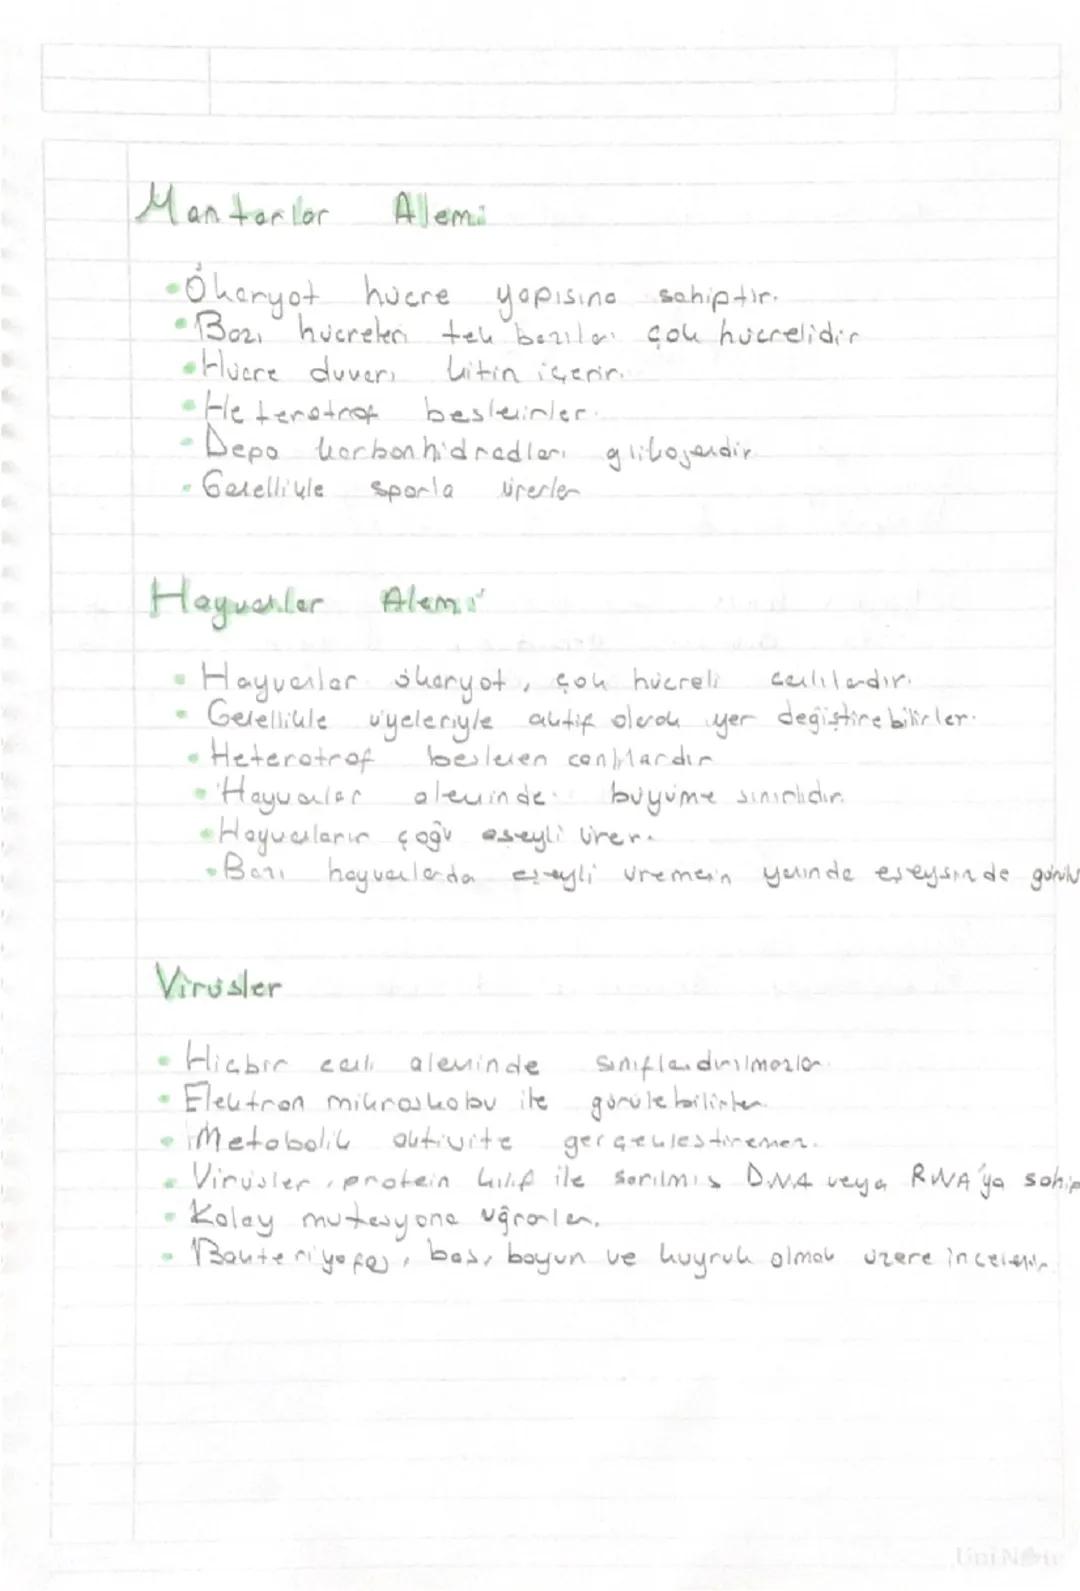 Mantarlar Alemi
• Ökaryot hücre yapısına sahiptir.
• Bazı hücreleri tek bazıları çok hücrelidir
• Hücre duvarı kitin içerir.
• Heterotrof beslenirler.
• Depo karbonhidradları glikojendir.
• Genellikle sporla ürerler
Hayvanlar Alemi
• Hayvanlar ökaryot, çok hücreli canlılardır.
• Genellikle üyeleriyle aktif olarak yer değiştirebilirler.
• Heterotrof beslenen canlılardır
• Hayvanlar aleminde büyüme sınırlıdır.
• Hayvanların çoğu eşeyli ürer.
• Bazı hayvanlarda eşeyli üremenin yanında eşeysizde
Virüsler
• Hiçbir canlı aleminde sınıflandırılmazlar.
• Elektron mikroskobu ile görülebilirler.
• Metabolik aktivite gerçekleştiremez.
• Virüsler, protein kılıf ile sarılmış DNA veya RNA'ya sahip
• Kolay mutasyona uğrarlar.
• Bakteriyofaj, baş, boyun ve kuyruk olmak üzere incelenir.
UniNote